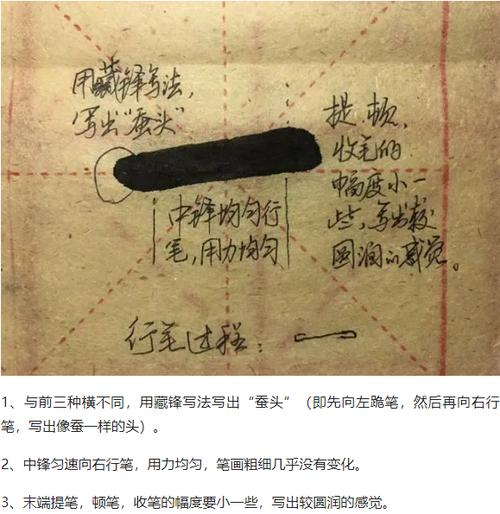 用藏锋写法,
写出"蚕头"
提、顿、
收笔的
幅度小一
些,写出较
圆润的感觉。
中锋均匀行
笔,用力均匀
行笔过程:
1、与前三种横不同，用藏锋写法写出“蚕头”（即先向左跪笔，然后再向右行
笔，写出像蚕一样的头）。
2、中锋匀速向右行笔，用力均匀，笔画粗细几乎没有变化。
3、末端提笔，顿笔，收笔的幅度要小一些，写出较圆润的感觉。